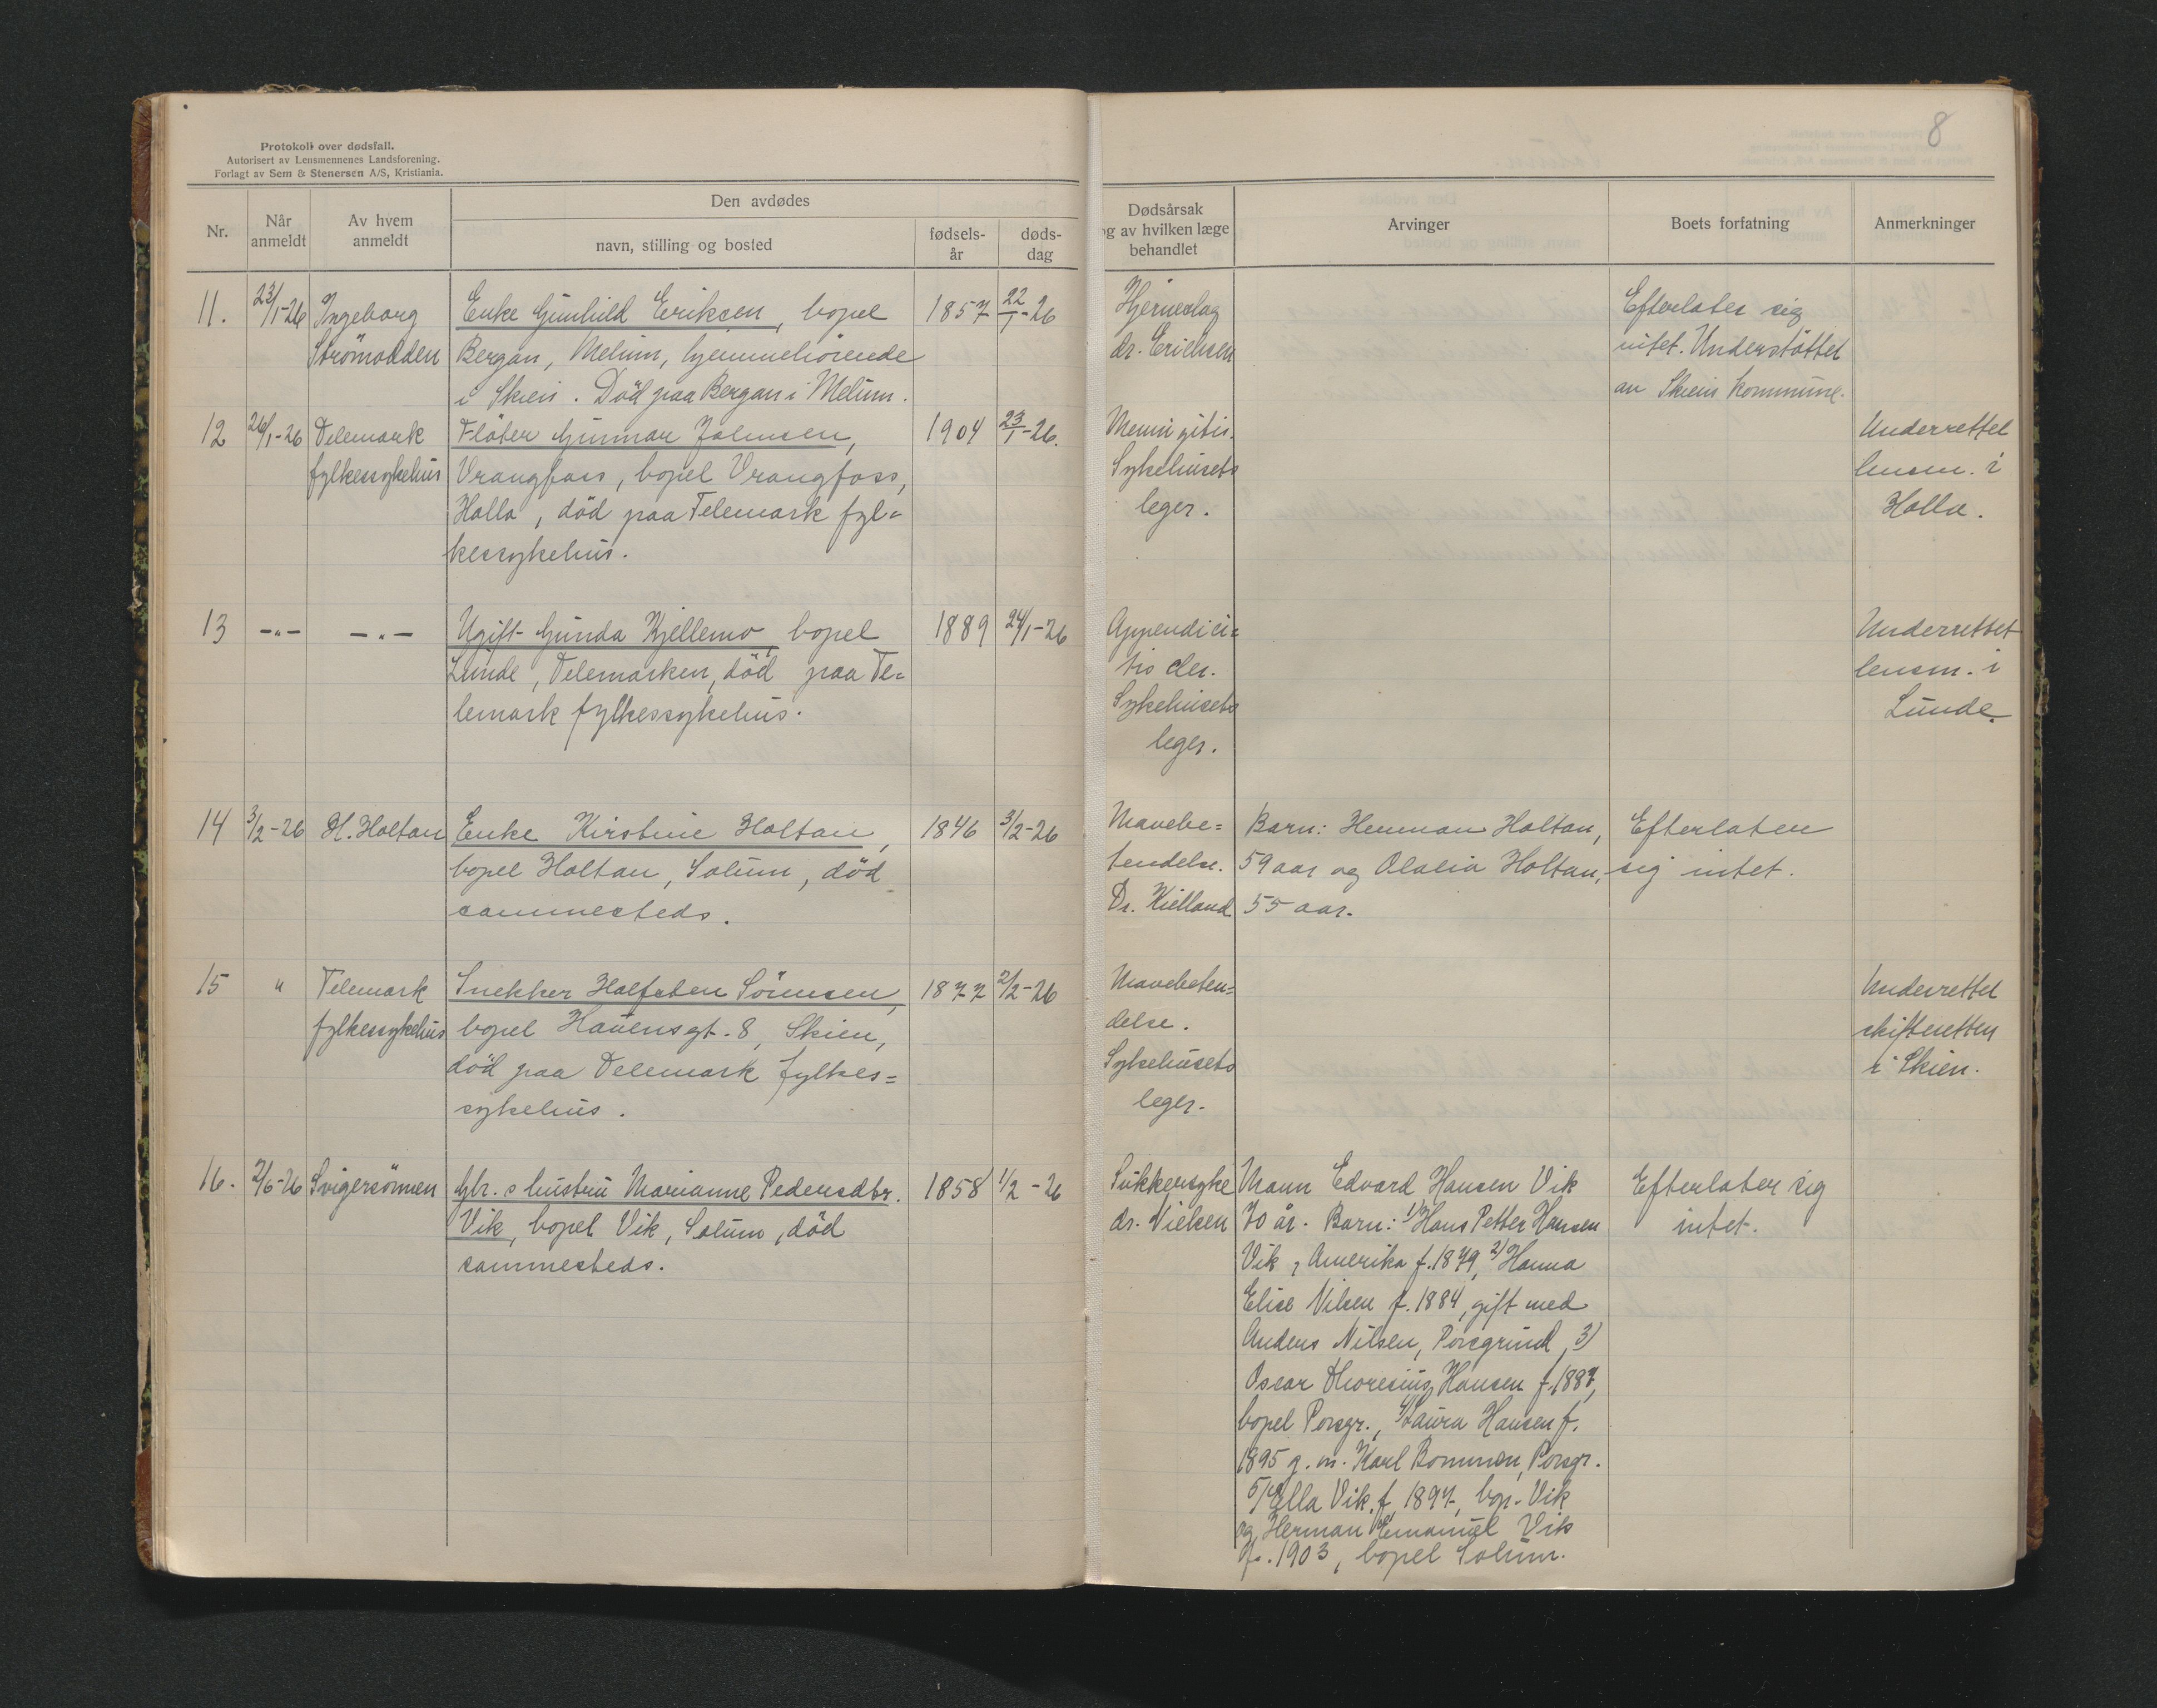 Protokoll over dødsfall.
Autorisert av Lensmennenes Landsforening.
Forlagt av Sem & Stenersen A/S, Kristiania.
8
Nr.
Når
anmeldt
Av hvem
anmeldt
Den avdødes
navn, stilling og bosted
fødsels-
år
døds-
dag
Dødsårsak
og av hvilken læge
behandlet
Arvinger
Boets forfatning
Anmerkninger
11.
23/1-26
Ingeborg
Strömodden
Enke Gunhild Eriksen, bopel
Bergan, Melum, hjemmehörende
i Skien. Död paa Bergan i Melum.
1857
22/1-26
Hjerneslag
dr. Erichsen
Efterlater sig
intet. Understöttet
av Skiens kommune.
12
26/1-26
Telemark
fylkessykehus
Flöter Gunnar Johnsen,
Vrangfoss, bopel Vrangfoss,
Holla, död paa Telemark fyl=
kessykehus.
1904
23/1-26.
Meningitis.
Sykehusets
leger.
Underrettet
lensm. i
Holla.
13
-"-
-"-
Ugift Gunda Kjellemo, bopel
Lunde, Telemarken, död paa Te=
lemark fylkessykehus.
1889
24/1-26
Appendici=
tis der.
Sykehusets
leger.
Underrettet
lensm. i
Lunde.
14
3/2-26
H. Holtan
Enke Kirstine Holtan,
bopel Holtan, Solum, död
sammesteds.
1846
3/2-26
Mavebe=
tendelse.
Dr. Kielland
Barn: Herman Holtan,
59 aar og Olalia Holtan,
55 aar.
Efterlaten
sig intet.
15
"
Telemark
fylkessykehus
Snekker Halfsten Sörensen,
bopel Hauensgt. 8, Skien,
död paa Telemark fylkes=
sykehus.
1877
2/2-26
Mavebeten=
delse.
Sykehusets
leger.
Underrettet
skifteretten
i Skien.
16.
2/6-26
Svigersönnen
Gbr.s hustru Marianne Pedersdtr.
Vik, bopel Vik, Solum, död
sammesteds.
1858
1/2-26
Sukkersyke
dr. Nielsen
Mann Edvard Hansen Vik
70 år. Barn: 1) Hans Petter Hansen
Vik, Amerika f. 1879, 2) Hanna
Elise Nilsen f. 1884, gift med
Anders Nilsen, Porsgrund, 3)
Oscar Thoresius Hansen f. 1887,
bopel Porsgr., 4) Laura Hansen f.
1895 g. m. Karl Rommen, Porsgr.
5) Ella Vik, f. 1897, bop. Vik
og Herman Emanuel Vik
f. 1903, bopel Solum.
Efterlater sig
intet.